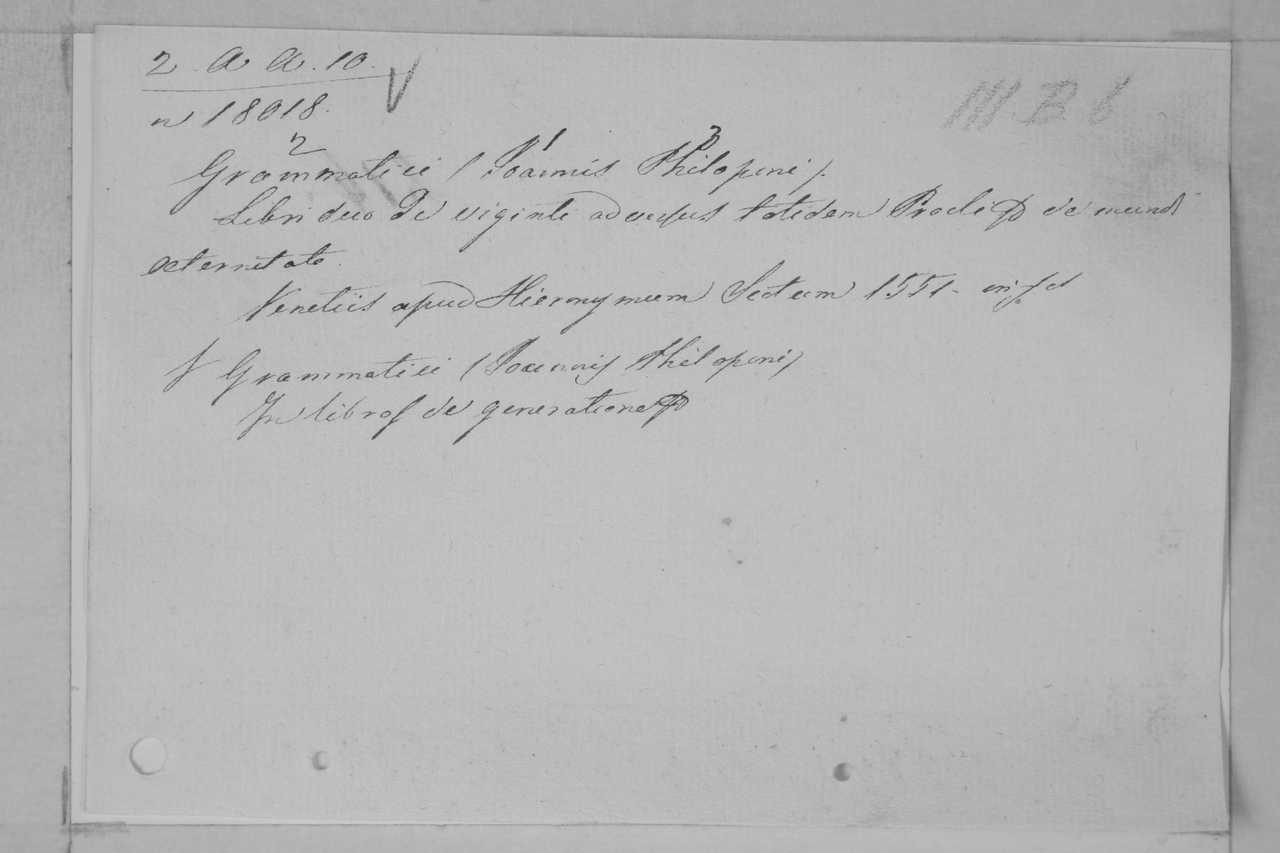 2. A A. 10. V
n 18018.
III B 6
2 1 3
Grammatici (Joannis Philoponi).
Libri duo De viginti adversus totidem Procli de mundi
aeternitate.
Venetiis apud Hieronymum Scotum 1551- in fol
Grammatici (Joannis Philoponi)
In libros de generatione